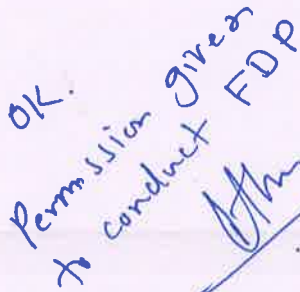 OK.
Permission given
to conduct FDP